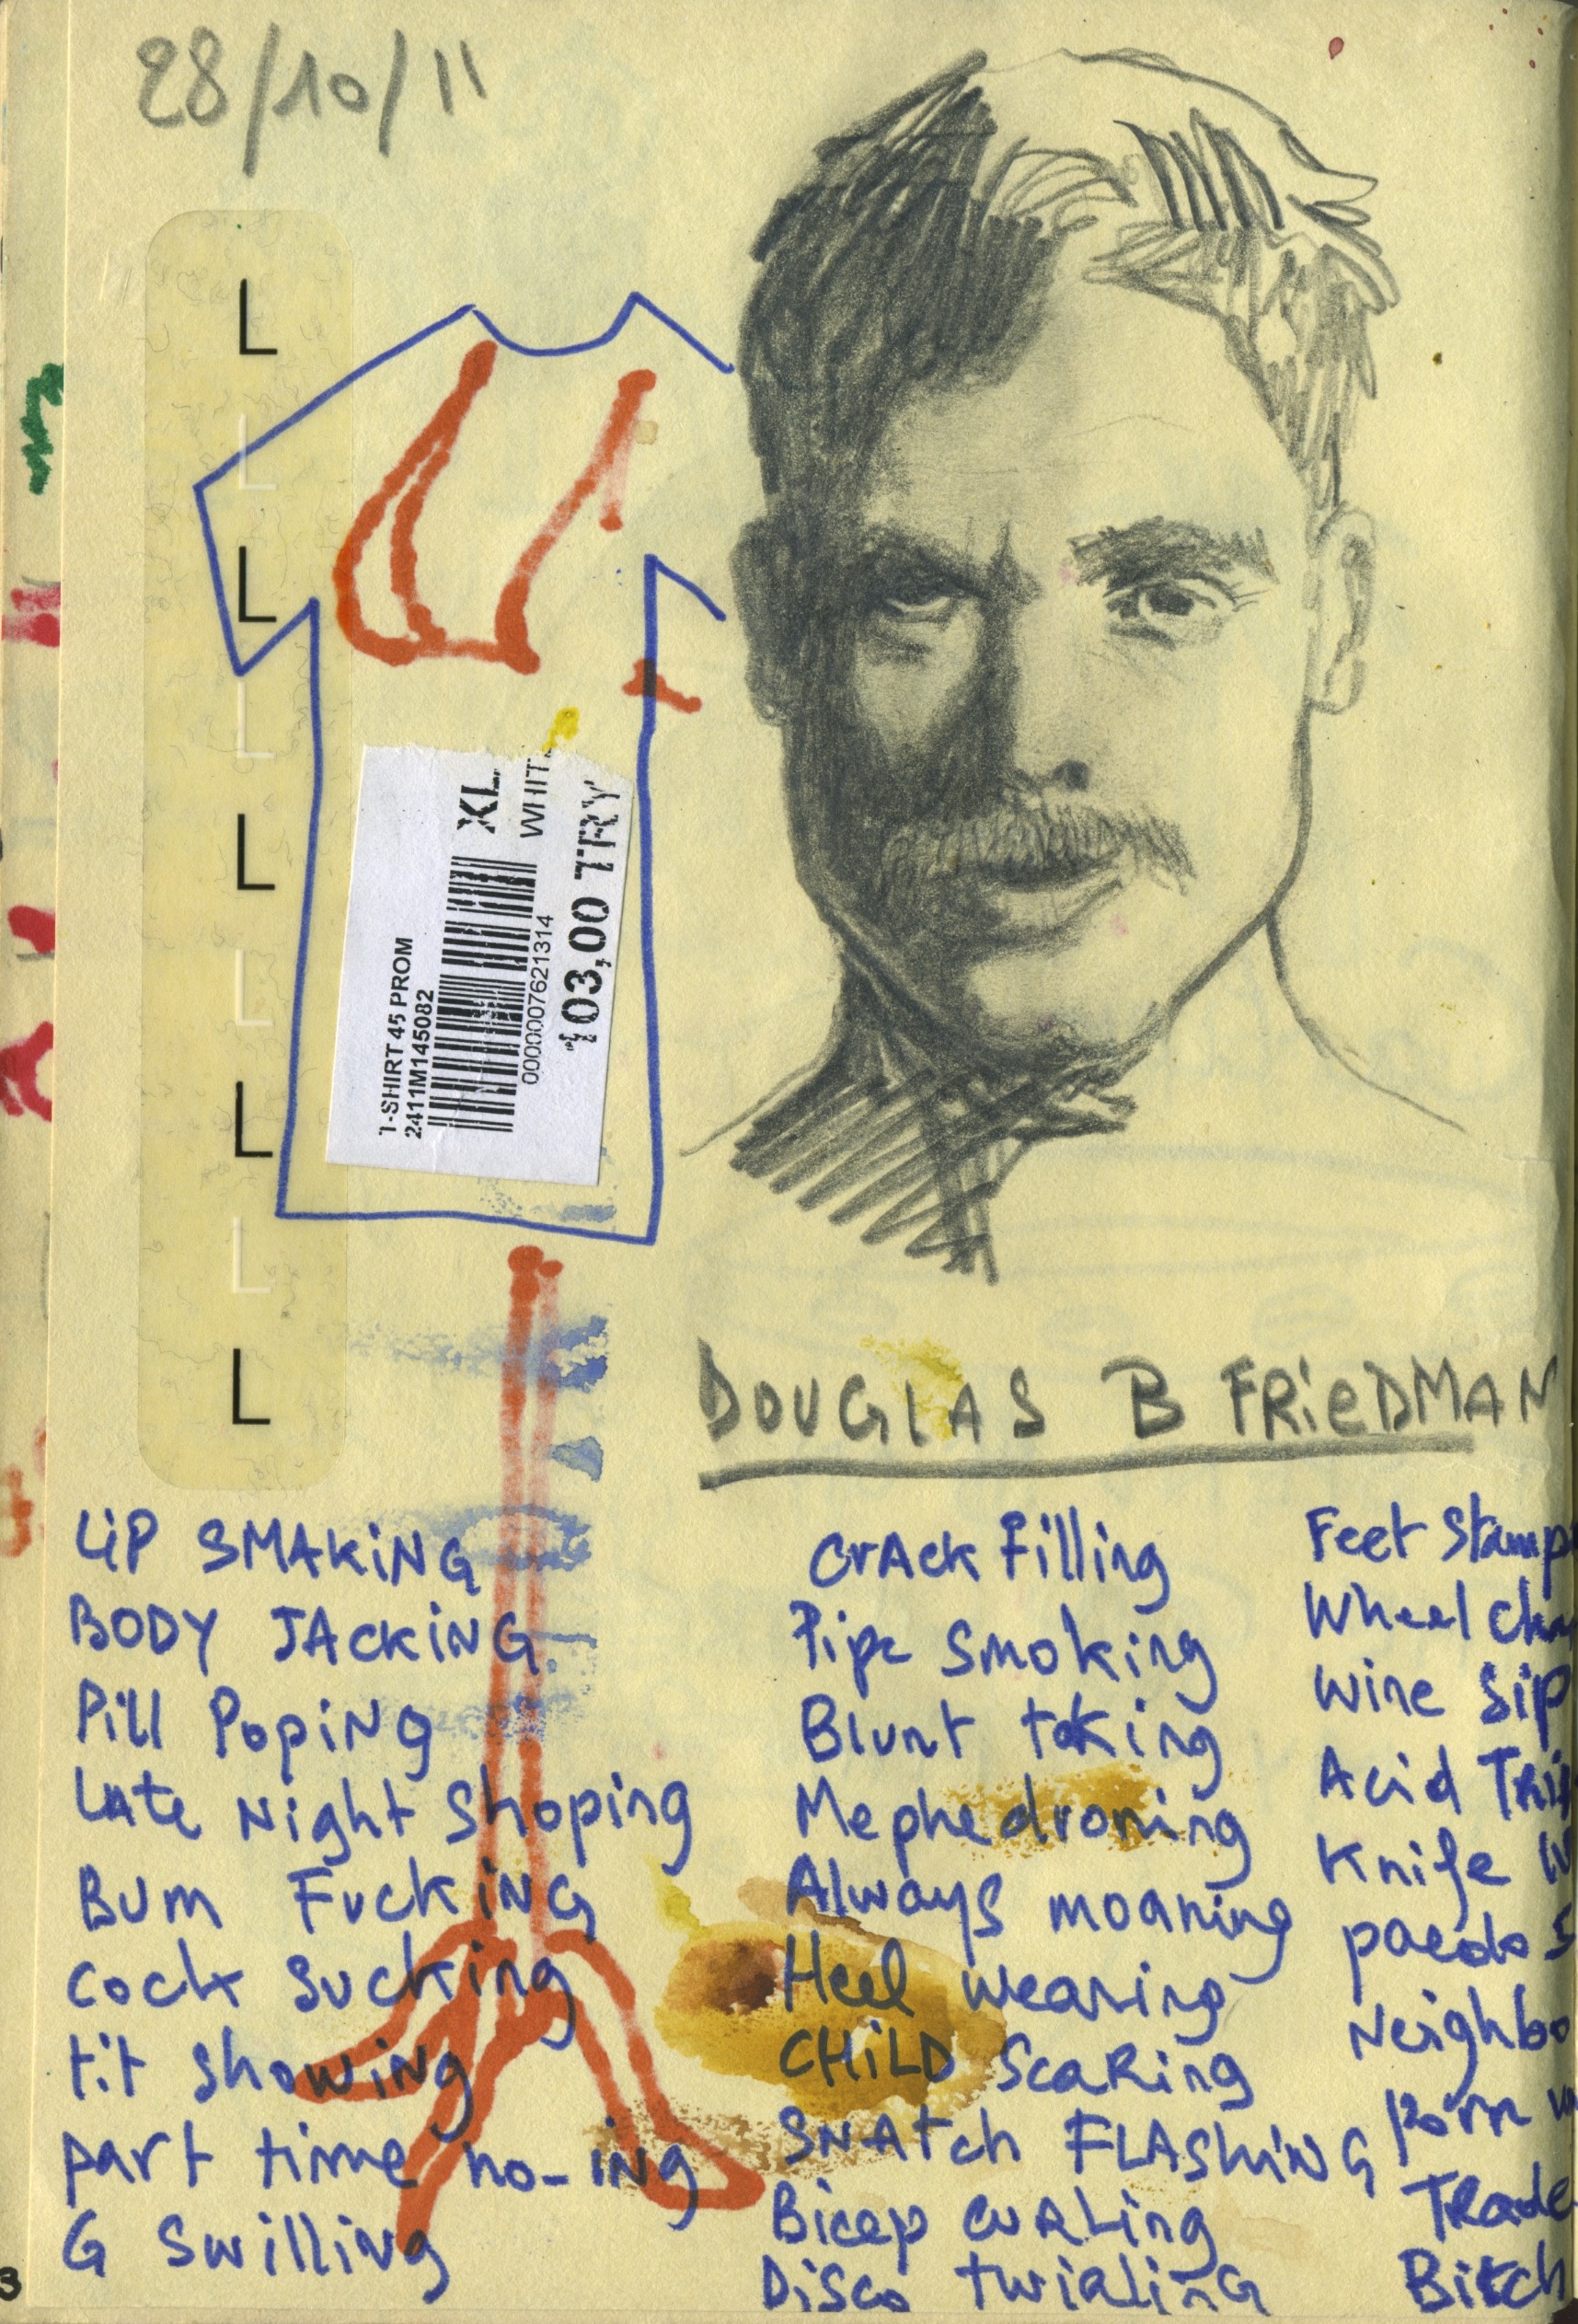 28/10/11
L
L
L
L
L
XL
WHIT
T-SHIRT 45 PROM
2411M145082
0000007621314
103,00 TRY
DOUGLAS B FRiEDMAN
LiP SMAKiNG
BODY JACKiNG
Pill PopiNg
Late Night Shoping
Bum FuckiNG
Cock Sucking
tit showiNg
part time ho-ing
G SwilliNg
CrAck Filling
Pipe Smoking
Blunt toking
Mephedroning
Always moaning
Heel wearing
CHiLD ScaRing
SNAtch FLAShiNG
Bicep cuRLing
DiSco twiRLinG
Feet Stamp
Wheel
Wine Sip
Acid TRip
Knife
paedo
Neighbo
Porn
TRade
Bitch
3